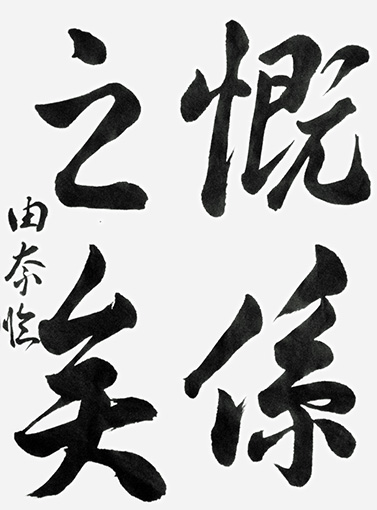 慨係
之矣
由奈臨